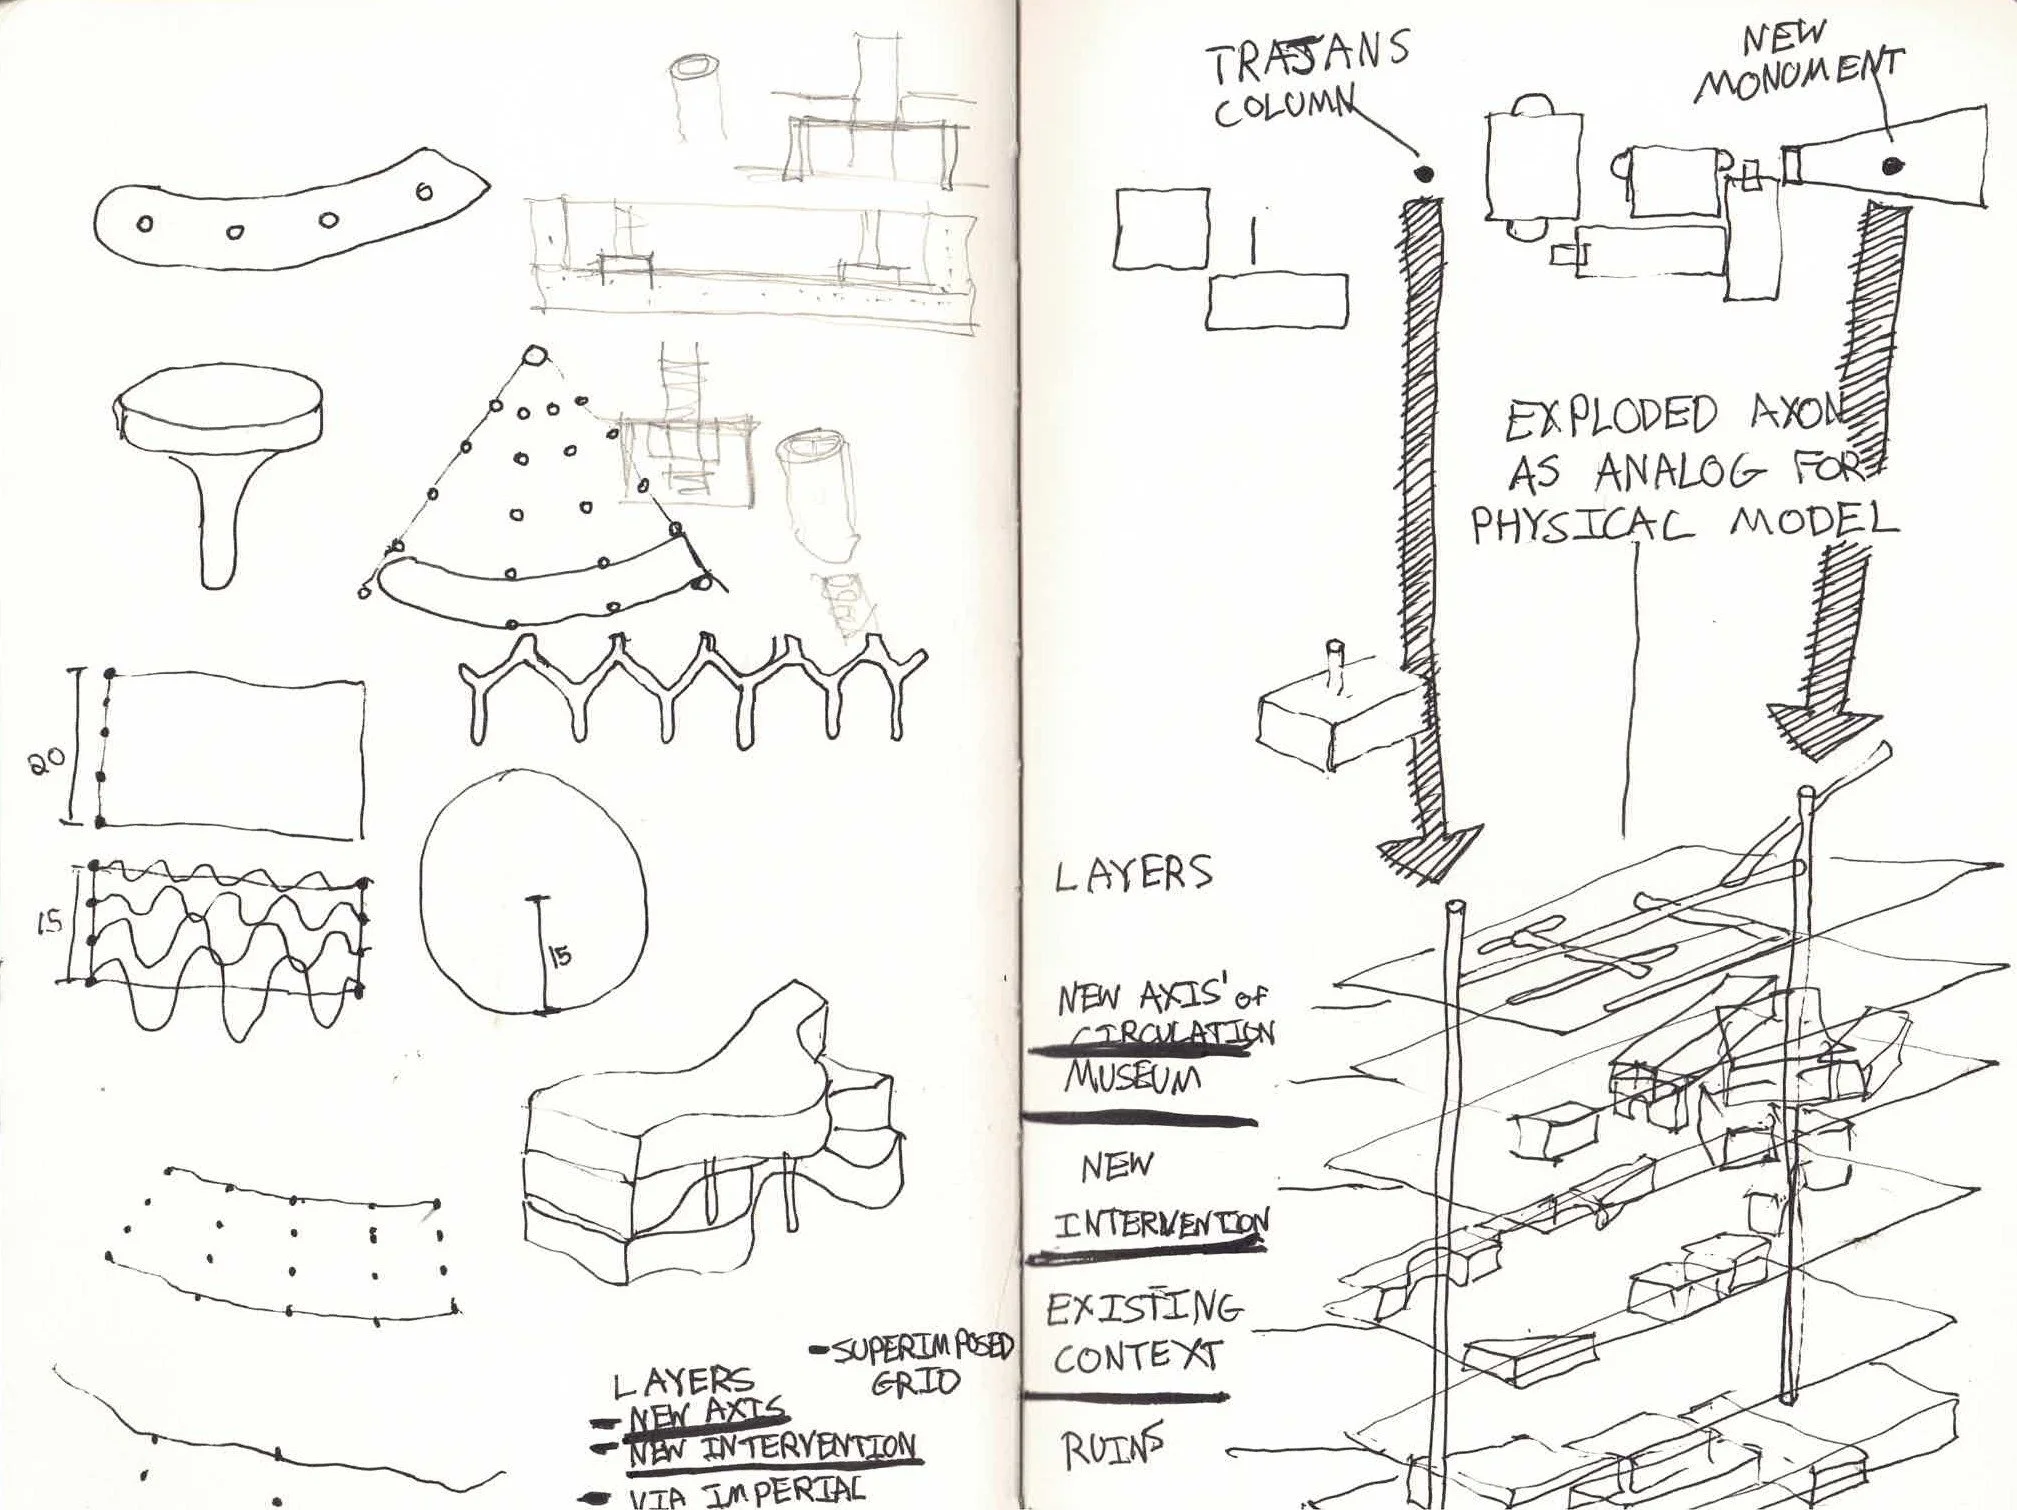 20
15
15
- SUPERIMPOSED
GRID
LAYERS
- NEW AXIS
- NEW INTERVENTION
- VIA IMPERIAL
TRAJANS
COLUMN
NEW
MONUMENT
EXPLODED AXON
AS ANALOG FOR
PHYSICAL MODEL
LAYERS
NEW AXIS' OF
CIRCULATION
MUSEUM
NEW
INTERVENTION
EXISTING
CONTEXT
RUINS